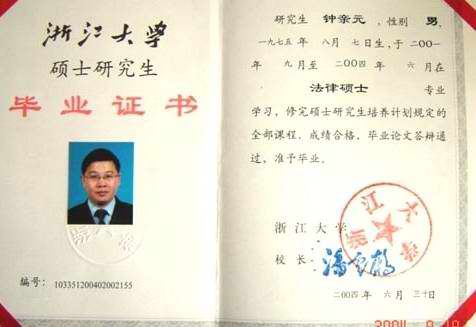 浙江大学
硕士研究生
毕业证书
编号: 103351200402002155
研究生 钟亲元 , 性别 男,
一九七五年 八月 七日生, 于 二00一
年 九月至 二00四年 六月在
法律硕士 专业
学习, 修完硕士研究生培养计划规定的
全部课程, 成绩合格, 毕业论文答辩通
过, 准予毕业。
浙江大学
校长: 潘云鹤
二00四年 六月 三十日